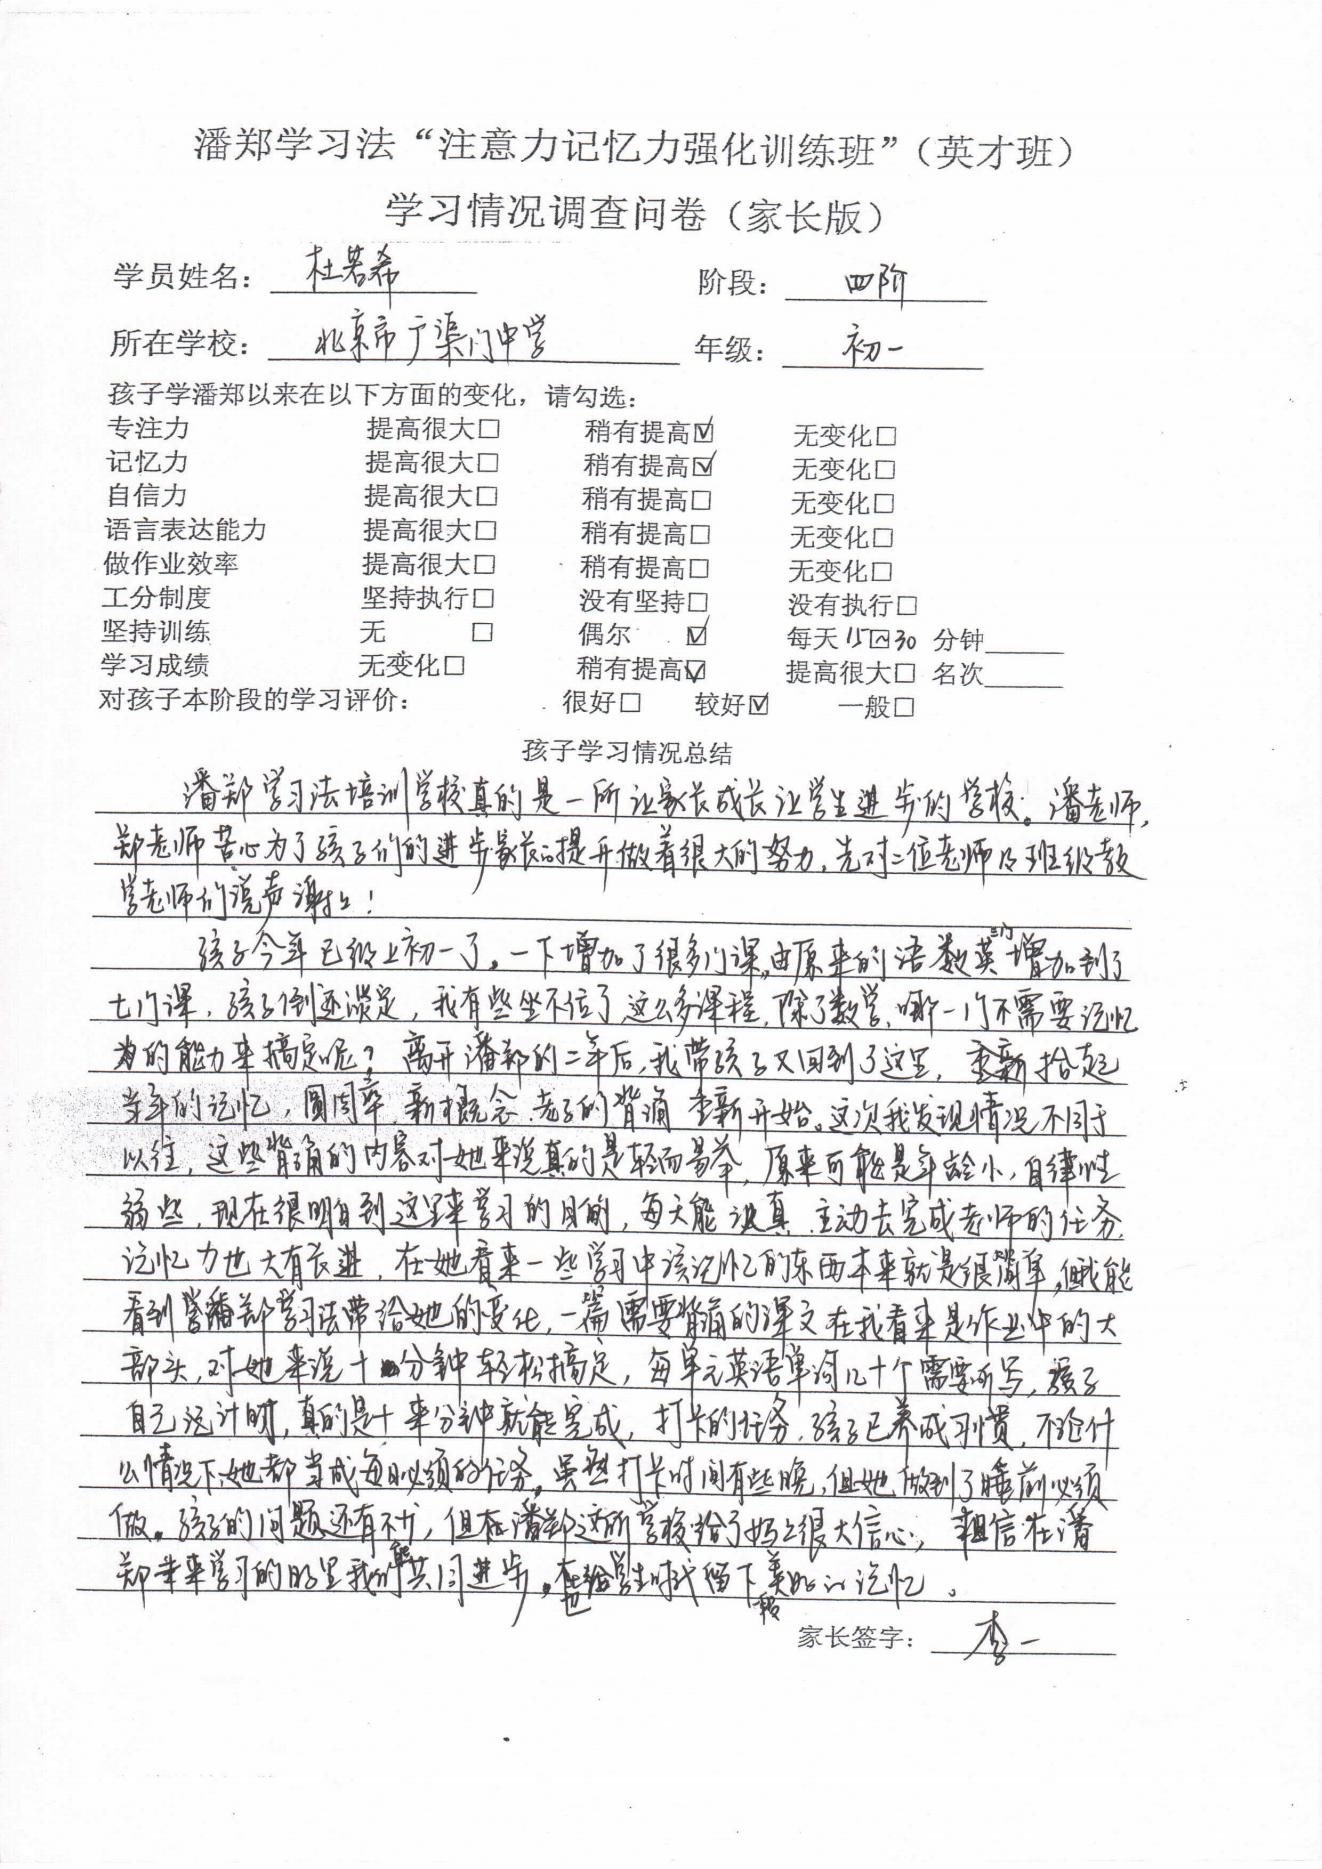 潘郑学习法“注意力记忆力强化训练班”（英才班）
学习情况调查问卷（家长版）
学员姓名： 杜若希 阶段： 四阶
所在学校： 北京市广渠门中学 年级： 初一
孩子学潘郑以来在以下方面的变化，请勾选：
专注力 提高很大□ 稍有提高☑ 无变化□
记忆力 提高很大□ 稍有提高☑ 无变化□
自信力 提高很大□ 稍有提高□ 无变化□
语言表达能力 提高很大□ 稍有提高□ 无变化□
做作业效率 提高很大□ 稍有提高□ 无变化□
工分制度 坚持执行□ 没有坚持□ 没有执行□
坚持训练 无 □ 偶尔 ☑ 每天15□30 分钟
学习成绩 无变化□ 稍有提高☑ 提高很大□ 名次
对孩子本阶段的学习评价： 很好□ 较好☑ 一般□
孩子学习情况总结
潘郑学习法培训学校真的是一所让家长成长让学生进步的学校。潘老师，
郑老师苦心为了孩子们的进步家长的提升做着很大的努力，先对二位老师及班级教
学老师们说声谢谢！
孩子今年已经上初一了，一下增加了很多门课，由原来的语数英三门增加到了
七门课，孩子倒还淡定，我有些坐不住了，这么多课程，除了数学，哪一门不需要记忆
的能力来搞定呢？离开潘郑的二年后，我带孩子又回到了这里，重新拾起
当年的记忆，圆周率，新概念，老子的背诵重新开始。这次我发现情况不同于
以往，这些背诵的内容对她来说真的是轻而易举，原来可能是年龄小，自律性
弱些，现在很明白到这里来学习的目的，每天能认真、主动去完成老师的任务，
记忆力也大有长进，在她看来一些学习中该记忆的东西本来就是很简单，但我能
看到学潘郑学习法带给她的变化，一篇需要背诵的课文在我看来是作业中的大
部头，对她来说十分钟轻松搞定，每单元英语单词几十个需要听写，孩子
自己说计时，真的是十来分钟就能完成，打卡的任务，孩子已养成习惯，不论什
么情况下她都当成每日必须的任务，虽然打卡时间有些晚，但她做到了睡前必须
做。孩子的问题还有不少，但在潘郑这所学校给了妈妈很大信心，相信在潘
郑未来学习的日子里我们能共同进步，也给学生时代留下美好的记忆。
家长签字： 李一